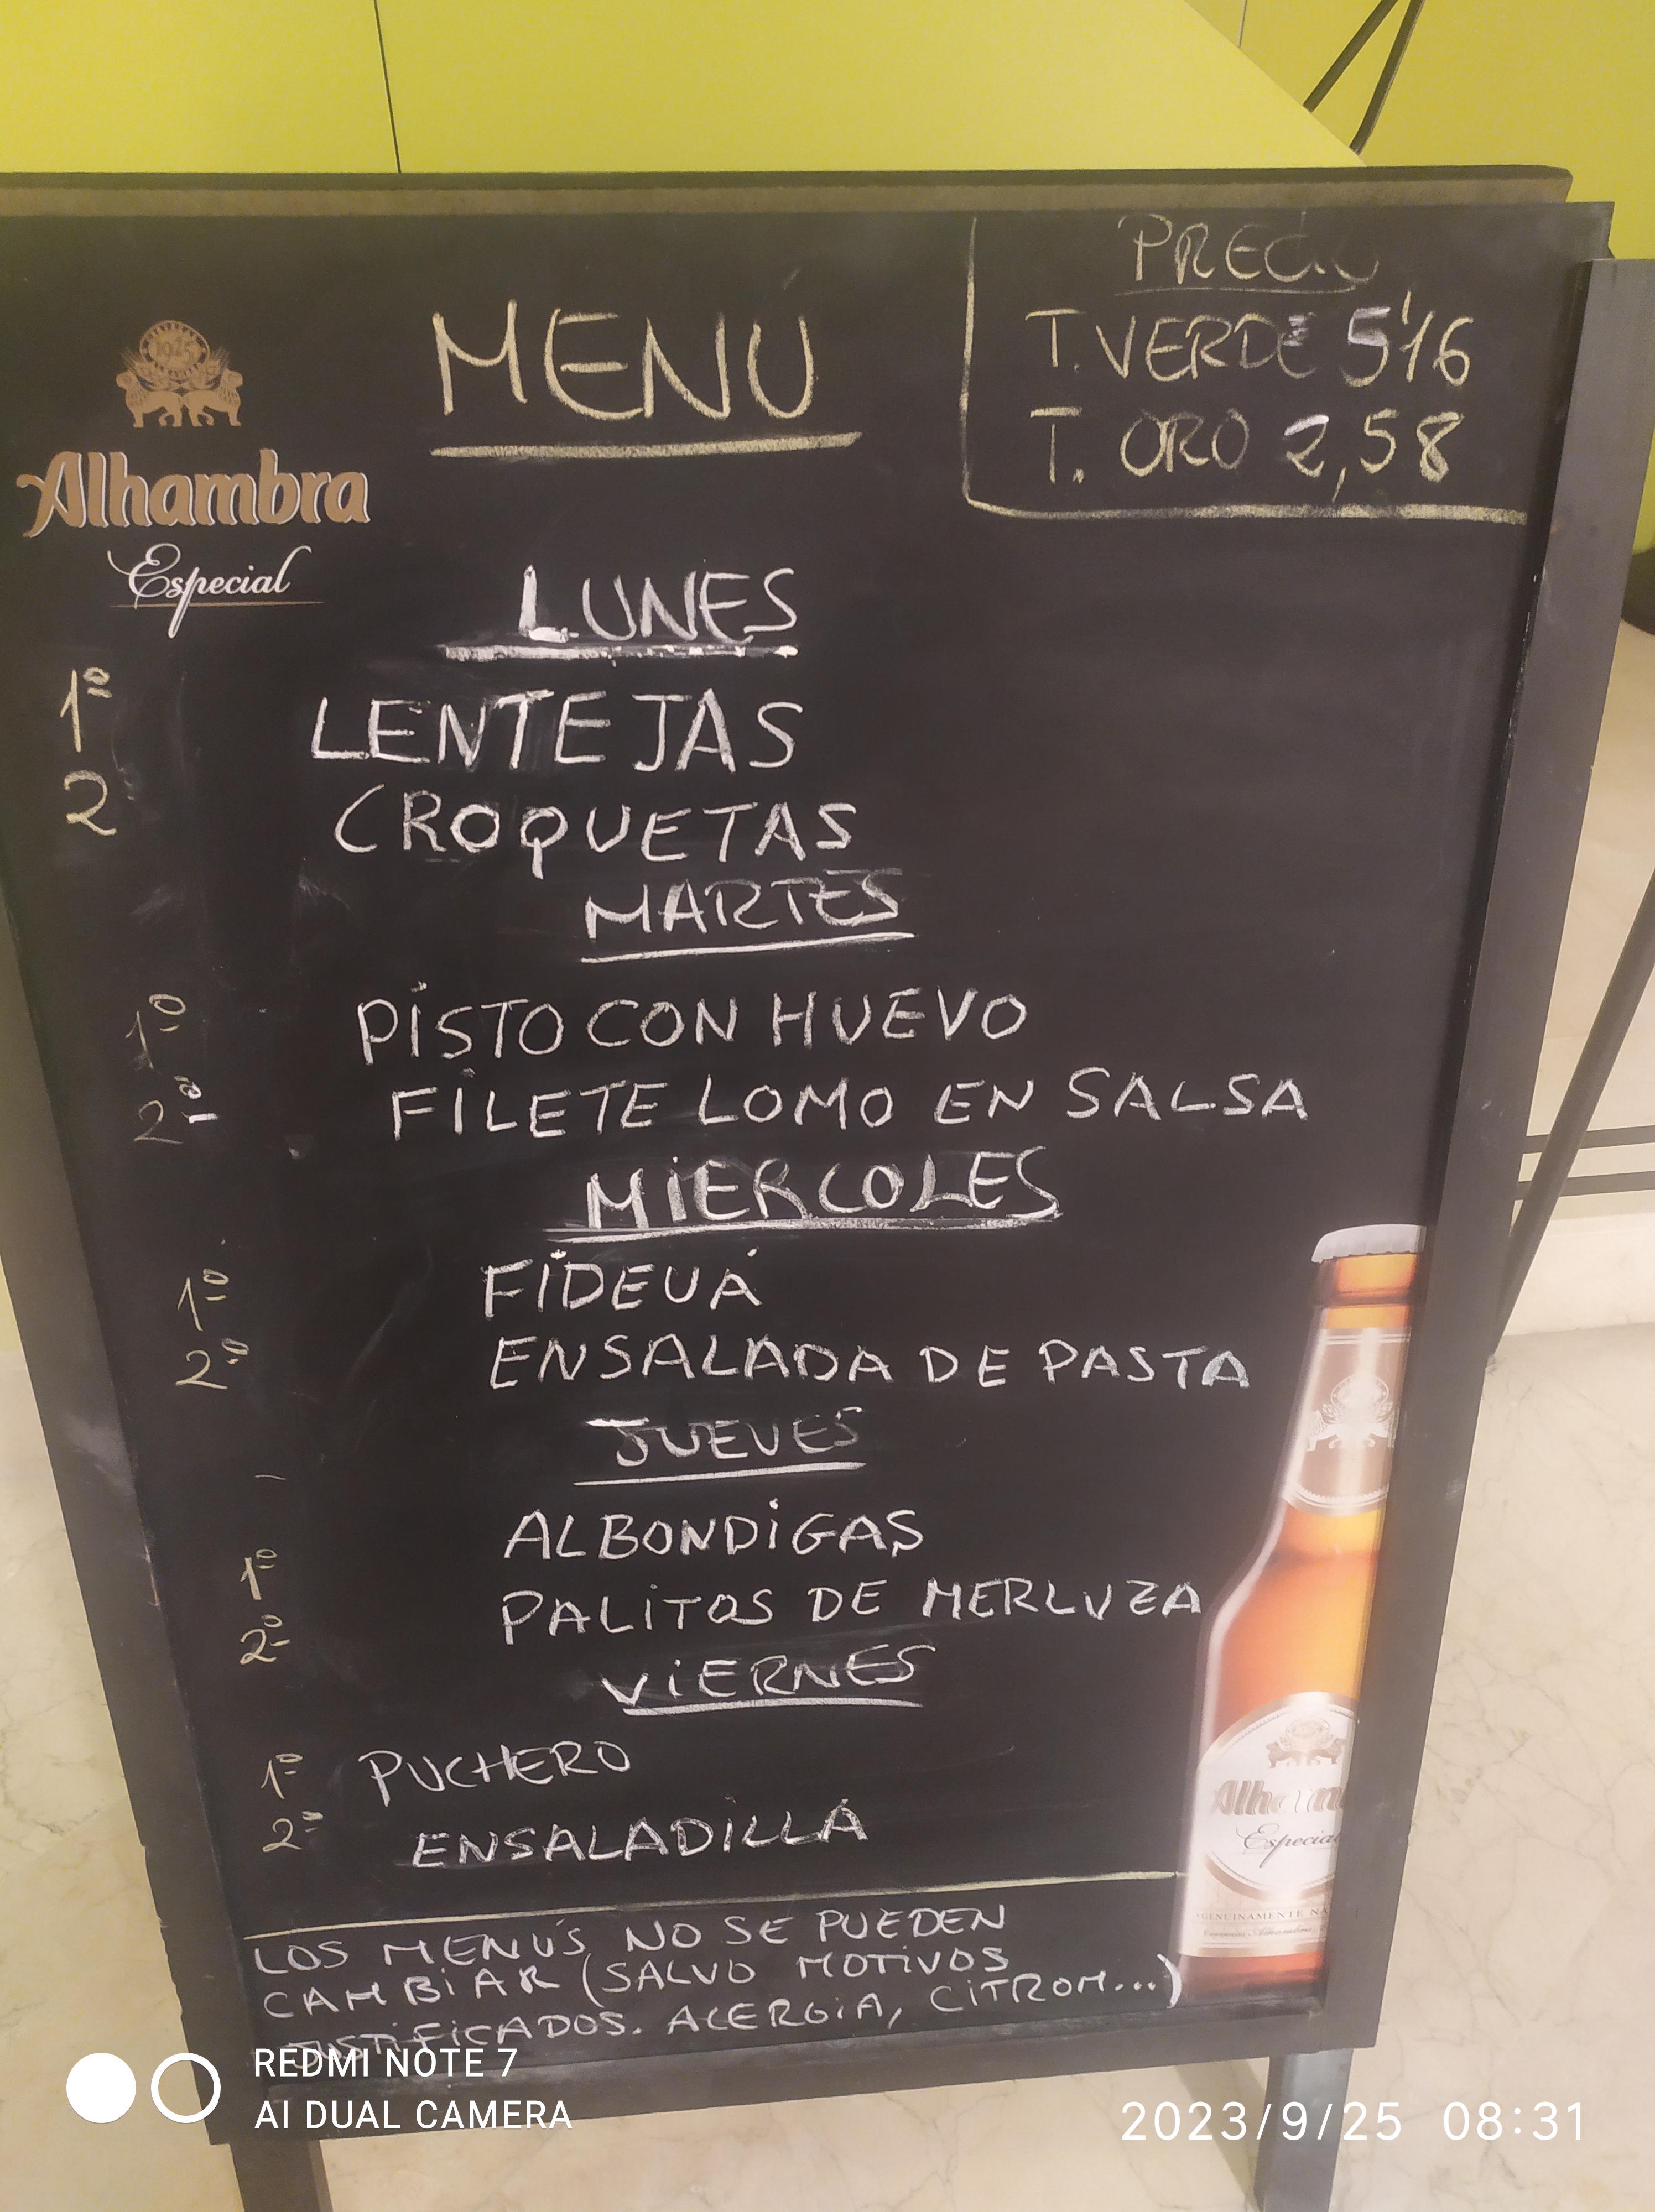 PRECIO
T. VERDE 5'16
T. ORO 2,58
MENÚ
1925
Alhambra
Especial
LUNES
1º LENTEJAS
2 CROQUETAS
MARTES
1º PISTO CON HUEVO
2º FILETE LOMO EN SALSA
MIERCOLES
1º FIDEUÁ
2º ENSALADA DE PASTA
JUEVES
1º ALBONDIGAS
2º PALITOS DE MERLUZA
VIERNES
1º PUCHERO
2º ENSALADILLA
Alham
Especial
GENUINAMENTE NA
LOS MENÚS NO SE PUEDEN
CAMBIAR (SALVO MOTIVOS
JUSTIFICADOS. ALERGIA, CITROM...)
REDMI NOTE 7
AI DUAL CAMERA
2023/9/25 08:31